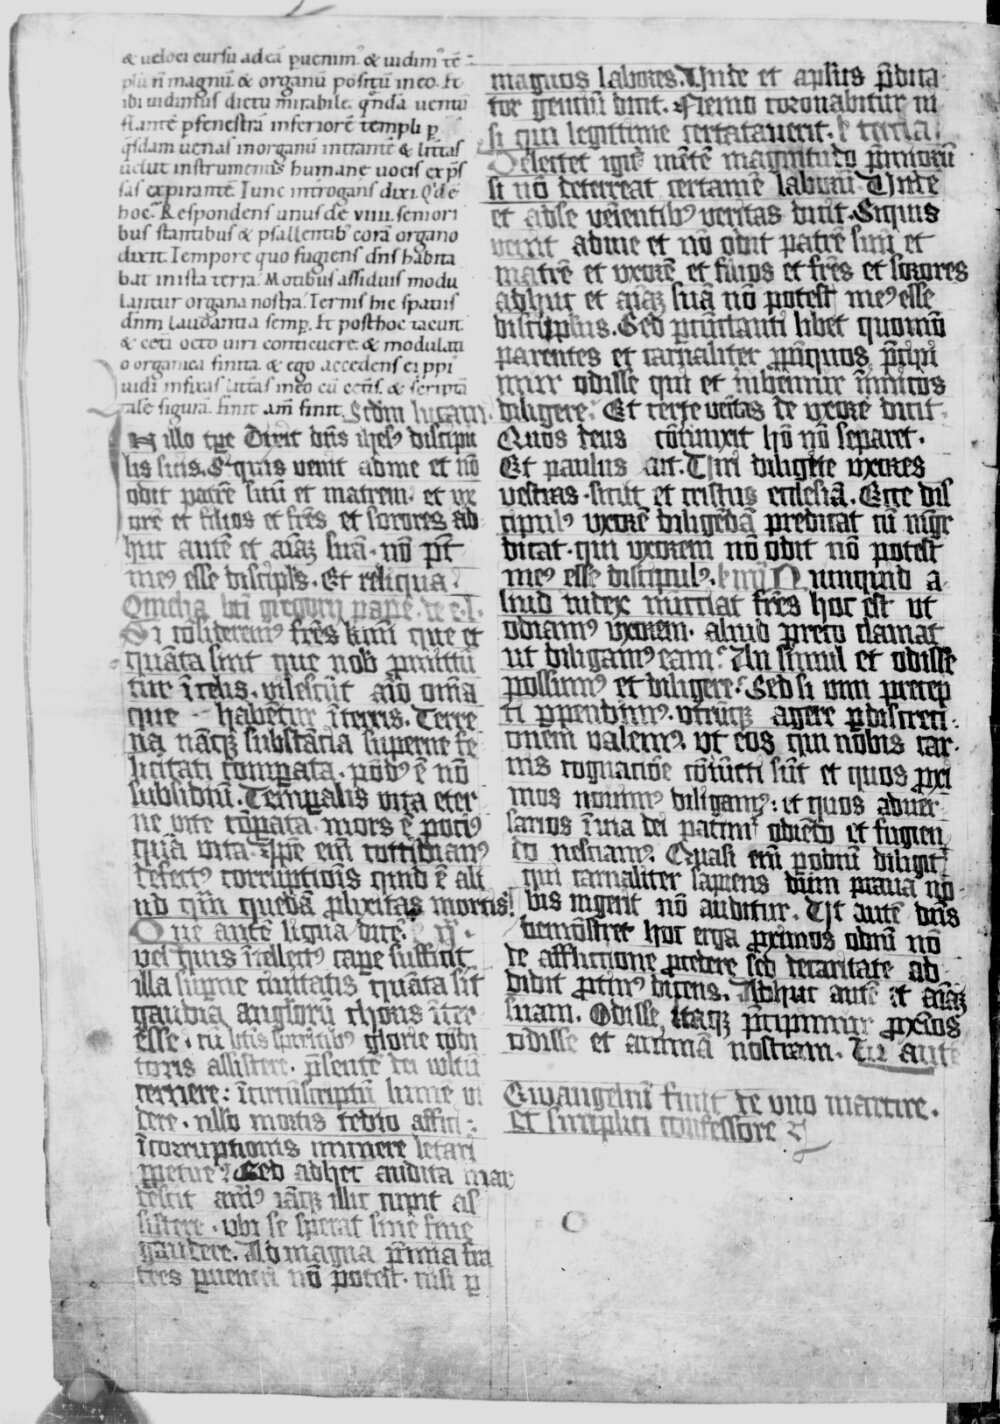 & veloci cursu ad eā pvenim᷒ & vidim᷒ tē
plū ñ magnū & organū positū in eo. Et
ibi vidimus dictu mirabile. qndā ventū
flantē p fenestrā inferiorē templi p
qsdam venas in organū intrantē & lr̄as
velut instrumentis humane vocis exp̄s
sas expirantē. Tunc introgans dixi. Qd ē
hoc. Respondens unus de viiii. seniori
bus stantibus & psallentib᷒ corā organo
dixit. Tempore quo fugiens dn̄s habita
bat in ista terra. Motibus assiduis modu
lantur organa nostra. Ternis hic spatiis
dn̄m laudantia semp. Et post hoc tacuit
& ceti octo viri conticuere. & modulati
o organica finita. & ego accedens ei ppi
vidi infixas litt̄as in eo cū cet̄is. & scriptā
tale figurā. finit am̄ finit. Scdm lucam
In illo tpe Dixit dn̄s ihesꝰ discipu
lis suis. Si quis venit ad me et nō
odit patrē suū et matrem. et ux
orē et filios et frēs et sorores ad
huc autē et aīaꝫ suā. nō pt̄
meꝰ esse discipls. Et reliqua.
Omelia bti gregorii pape. de e. l.
Si cōsideremꝰ frēs kmī que et
quāta sint que nob pmittū
tur ī celis. vilescūt aīo om̄ia
que habētur ī terris. Terre
na nāqꝫ substācia superne fe
licitati compata. pōdꝰ ē nō
subsidiū. Tempalis vita eter
ne vite cōpata. mors ē pociꝰ
quā vita. Ipe eīm cottidianꝰ
defectꝰ corruptiōis quid ē ali
ud qm̄ quedā plixitas mortis?
Que autē ligua dicē. ij.
vel quis ītellectꝰ cape sufficit
illa supne civitatis quāta sit
gaudia angloꝝū choris īter
esse. cū btis spiritibꝰ glorie cōdi
toris assistere. p̄sentē dei vultū
cernere: īcircūscriptū lumē vi
dere. nllo mortis tedio affici:
īcorruptionis munere letari
ppetue? Sed ad hec audita mar
cescit aīmꝰ iāqꝫ illic cupit as
sistere. ubi se sperat sine fine
gaudere. Ad magna p̄mia fra
tres pueniri nō potest. nisi p
magnos labores. Unde et aplus p̄dica
tor gentiū dicit. Nemo coronabitur ni
si qui legittime certaverit. l tercia
Delectet igꝰ mētē magnitudo p̄mioꝝū
si nō deterreat certamē laboꝝū. Unde
et ad se veīentibꝰ veritas dicit. Siquis
venit ad me et nō odit patrē suū et
matrē et uxorē et filios et frēs et sorores
adhuc et aīaꝫ suā nō potest meꝰ esse
discipulus. Sed pcūctanti libet quomō
parentes et carnaliter ppīquos. p̄cipi
mur odisse qui et iubemur īimicos
diligere? Et certe vēitas de uxorē dicit:
Quos deus cōiunxit hō nō separet.
Et paulus ait. Viri diligite uxores
vestras. sicut et cristus ecclesiā. Ecce dis
cipulꝰ uxorē diligēdā predicat cū mgr
dicat. qui uxorem nō odit nō potest
meꝰ esse discipulꝰ. l iiij Numquid a
liud iudex nūciat frēs hoc est ut
odiamꝰ uxorem. aliud preco clamat
ut diligamꝰ eam? An simul et odisse
possumꝰ et diligere? Sed si vim precep
ti ppendimꝰ. utrūqꝫ agere p discreti
onem valemꝰ. ut eos qui nobis car
nis cognacioē cōiūcti sūt et quos pxi
mos novimꝰ diligamꝰ: et quos adver
sarios ī via dei patimꝰ odiēdo et fugien
do nesciamꝰ. Quasi eīm p odiū diligit᷒
qui carnaliter sapiens dum prava no
bis ingerit nō auditur. Ut autē dn̄s
demōstret hoc erga pximos odiū nō
de afflictione pcedere sed de caritate ad
didit ptinꝰ dicens. Adhuc autē et aīaꝫ
suam. Odisse itaqꝫ p̄cipimur pximos
odisse et animā nostram. Tu autē
Ewangeliū finit de uno martire.
Et simplici confessore